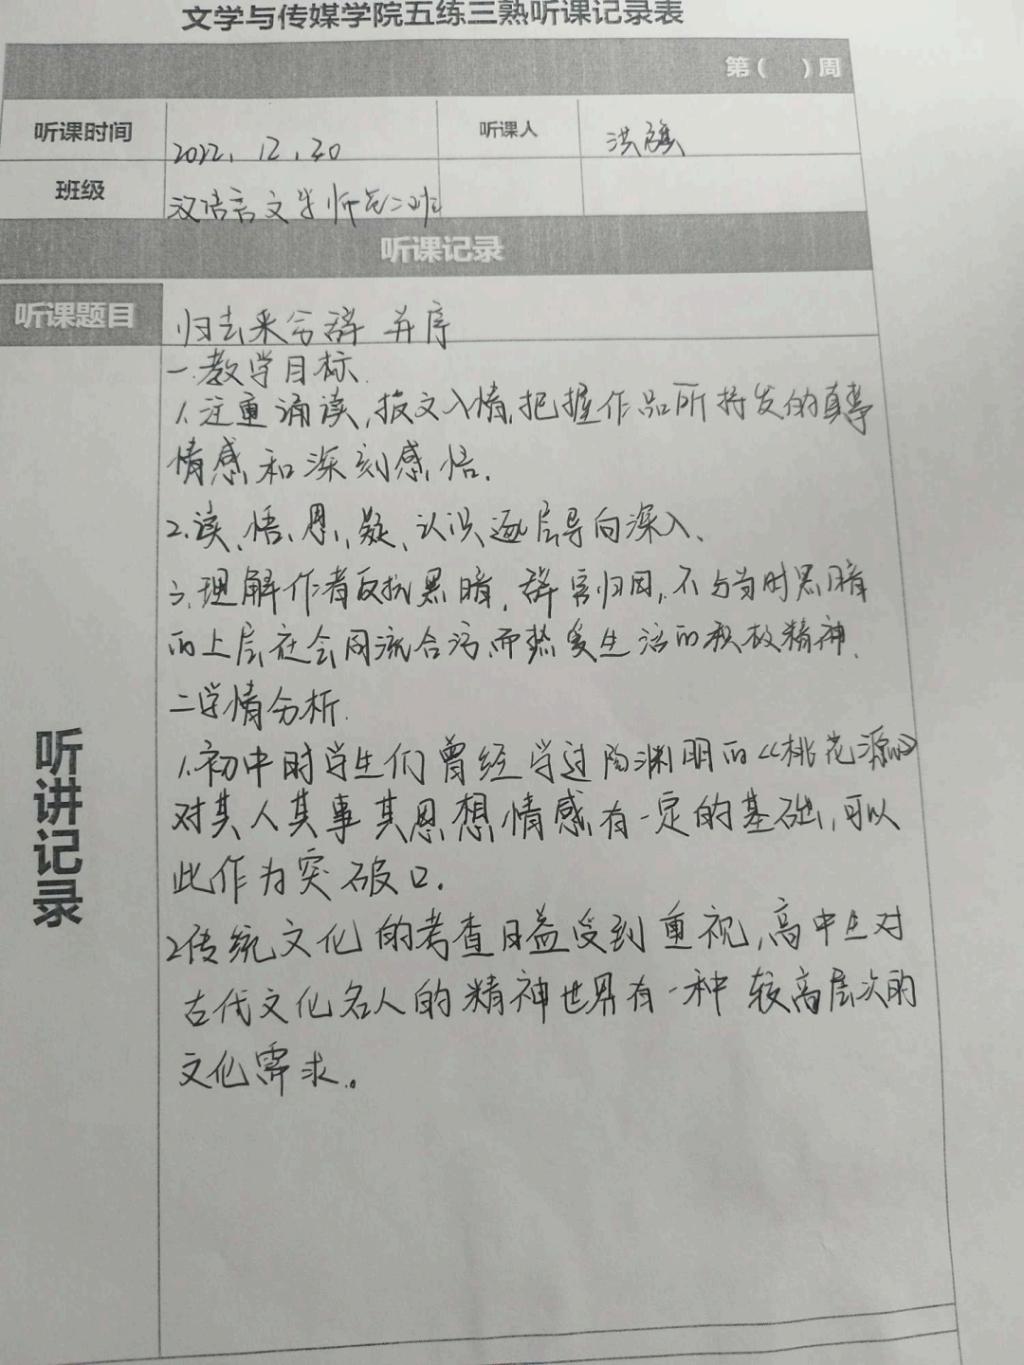 文学与传媒学院五练三熟听课记录表
第（ ）周
听课时间 2022.12.20 听课人 洪
班级 汉语言文学师范二班
听课记录
听课题目 归去来兮辞 并序
听讲记录
一.教学目标.
1.注重诵读,披文入情,把握作品所抒发的真挚
情感和深刻感悟.
2.读、悟、思、疑、认识逐层导向深入、
3.理解作者反抗黑暗,辞官归田,不与当时黑暗
的上层社会同流合污而热爱生活的积极精神.
二学情分析.
1.初中时学生们曾经学过陶渊明的《桃花源》
对其人其事其思想情感有一定的基础,可以
此作为突破口.
2传统文化的考查日益受到重视,高中生对
古代文化名人的精神世界有一种较高层次的
文化需求。